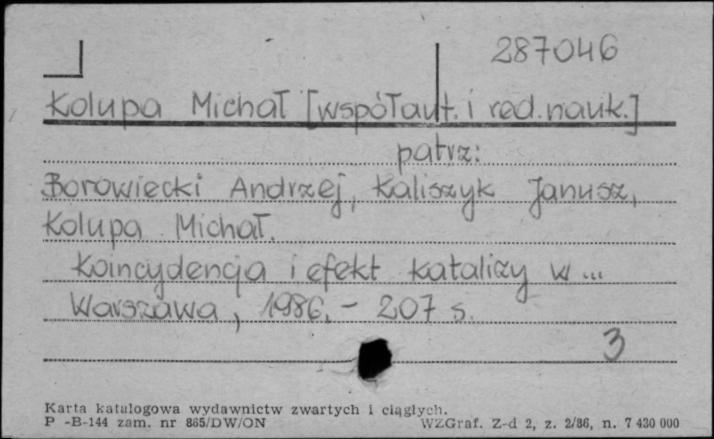 287046
Kolupa Michał [współaut. i red. nauk.]
patrz:
Borowiecki Andrzej, Kaliszyk Janusz,
Kolupa Michał.
Koincydencja i efekt katalizy w ...
Warszawa, 1986. - 207 s.
3
Karta katalogowa wydawnictw zwartych i ciągłych.
P -B-144 zam. nr 865/DW/ON WZGraf. Z-d 2, z. 2/86, n. 7 430 000